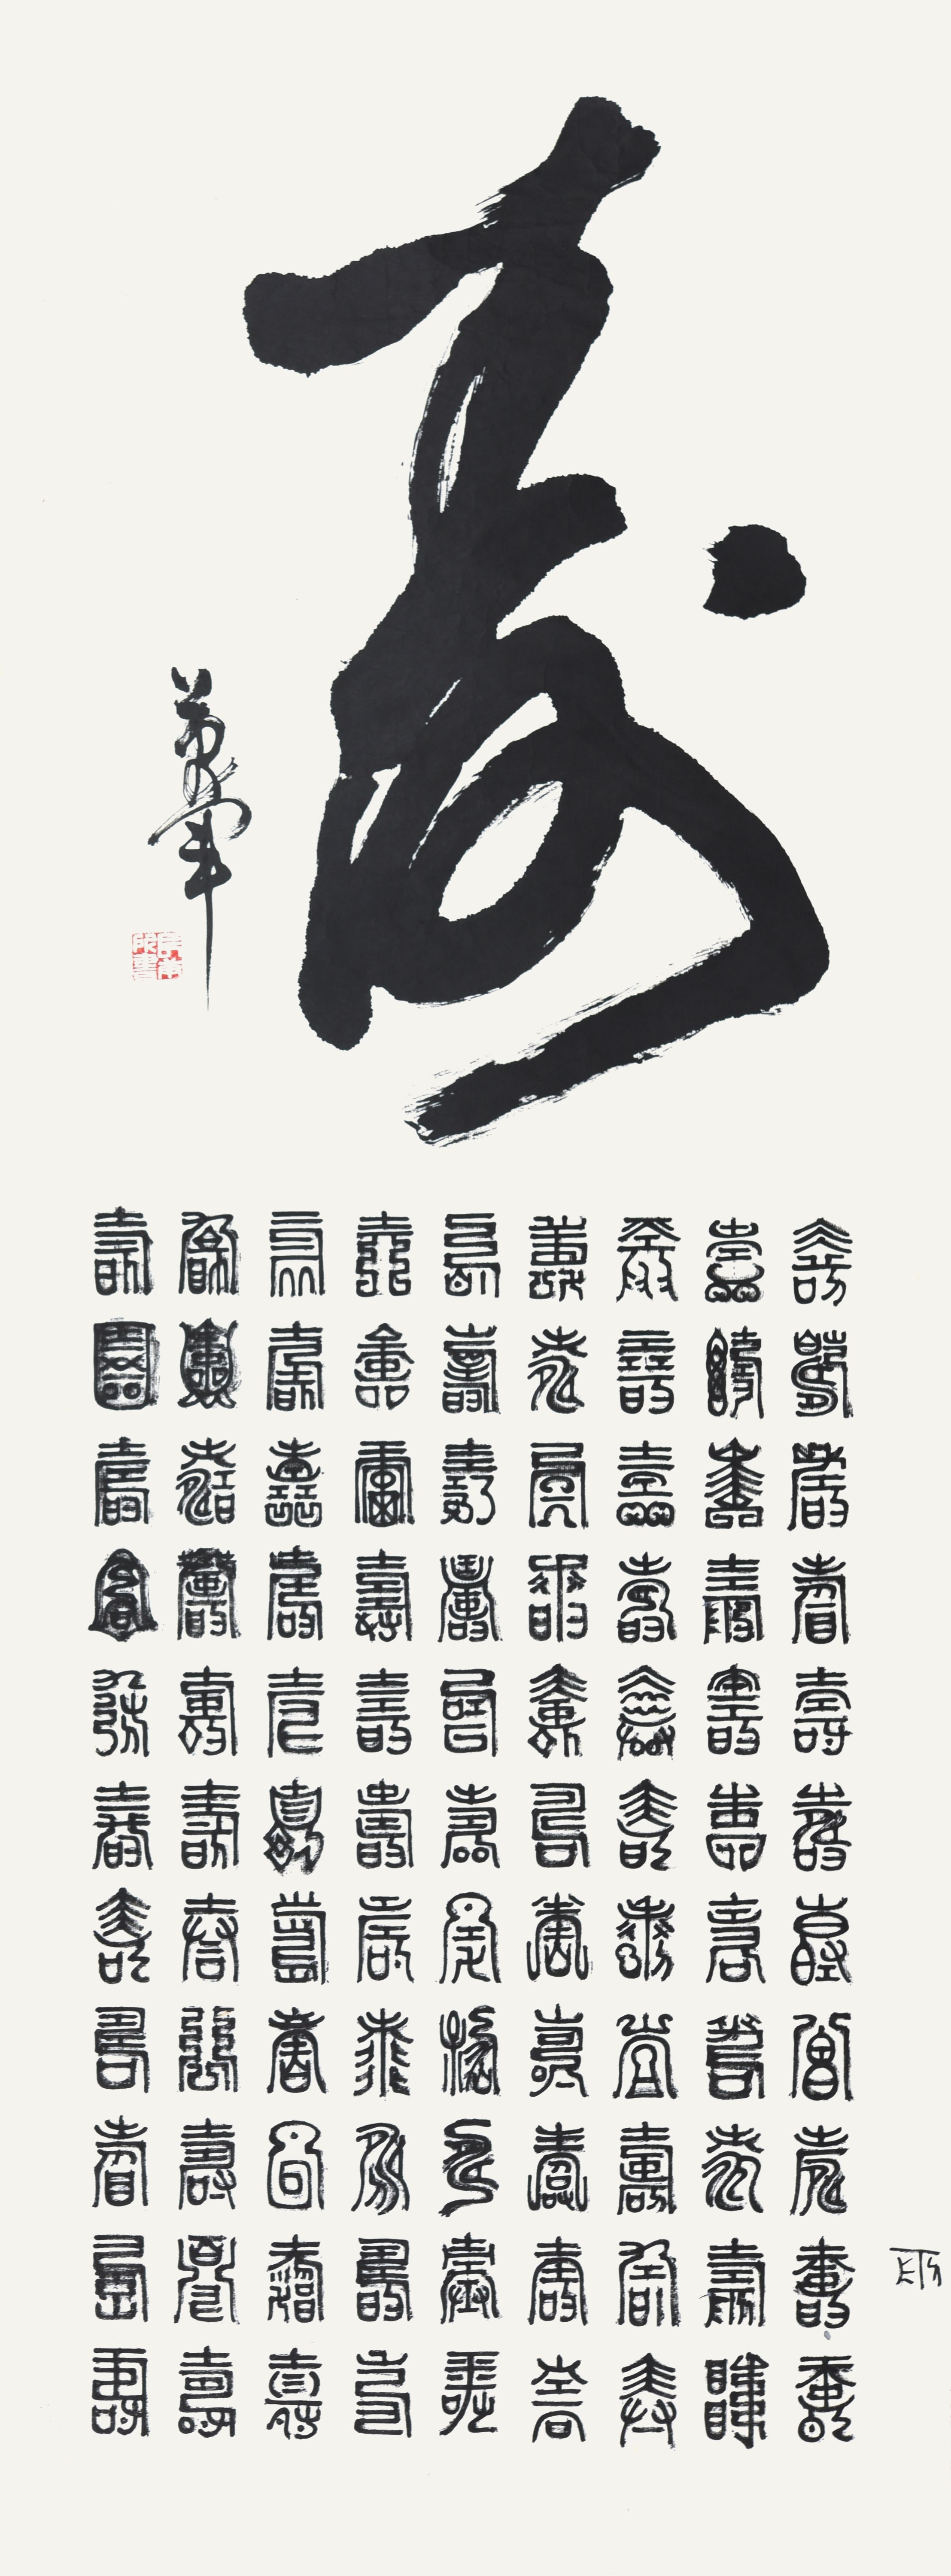 寿
壽壽壽壽壽壽壽壽壽壽壽
壽壽壽壽壽壽壽壽壽壽壽
壽壽壽壽壽壽壽壽壽壽壽
壽壽壽壽壽壽壽壽壽壽壽
壽壽壽壽壽壽壽壽壽壽壽
壽壽壽壽壽壽壽壽壽壽壽
壽壽壽壽壽壽壽壽壽壽壽
壽壽壽壽壽壽壽壽壽壽壽
壽壽壽壽壽壽壽壽壽壽壽